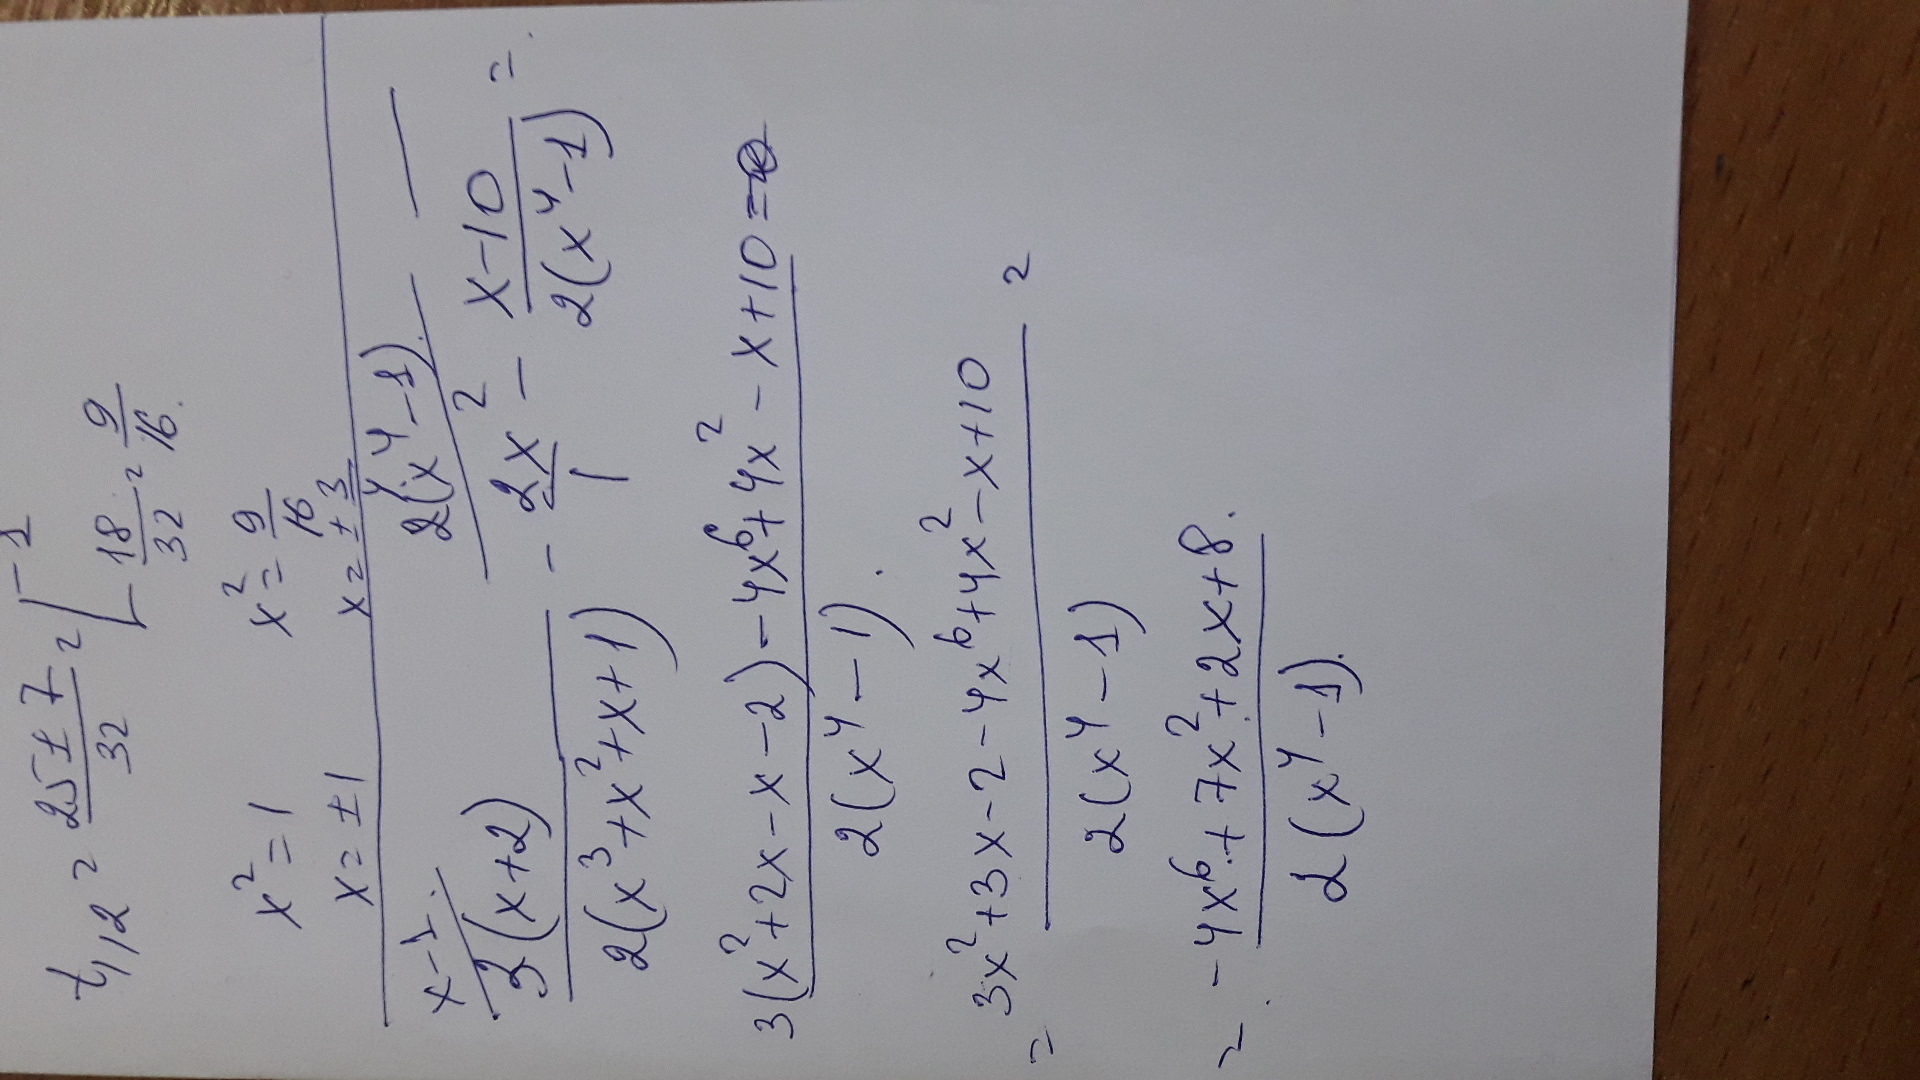 t₁,₂ = (25 ± 7)/32 = [ 1
18/32 = 9/16.
x² = 1 x² = 9/16
x = ±1 x = ±3/4
x-1. 2(x⁴-1). —
3(x+2)/2(x³+x²+x+1) - 2x²/1 - (x-10)/2(x⁴-1) =.
3(x²+2x-x-2)-4x⁶+4x²-x+10 =
2(x⁴-1).
= 3x²+3x-2-4x⁶+4x²-x+10 =
2(x⁴-1)
= -4x⁶+7x²+2x+8.
2(x⁴-1).